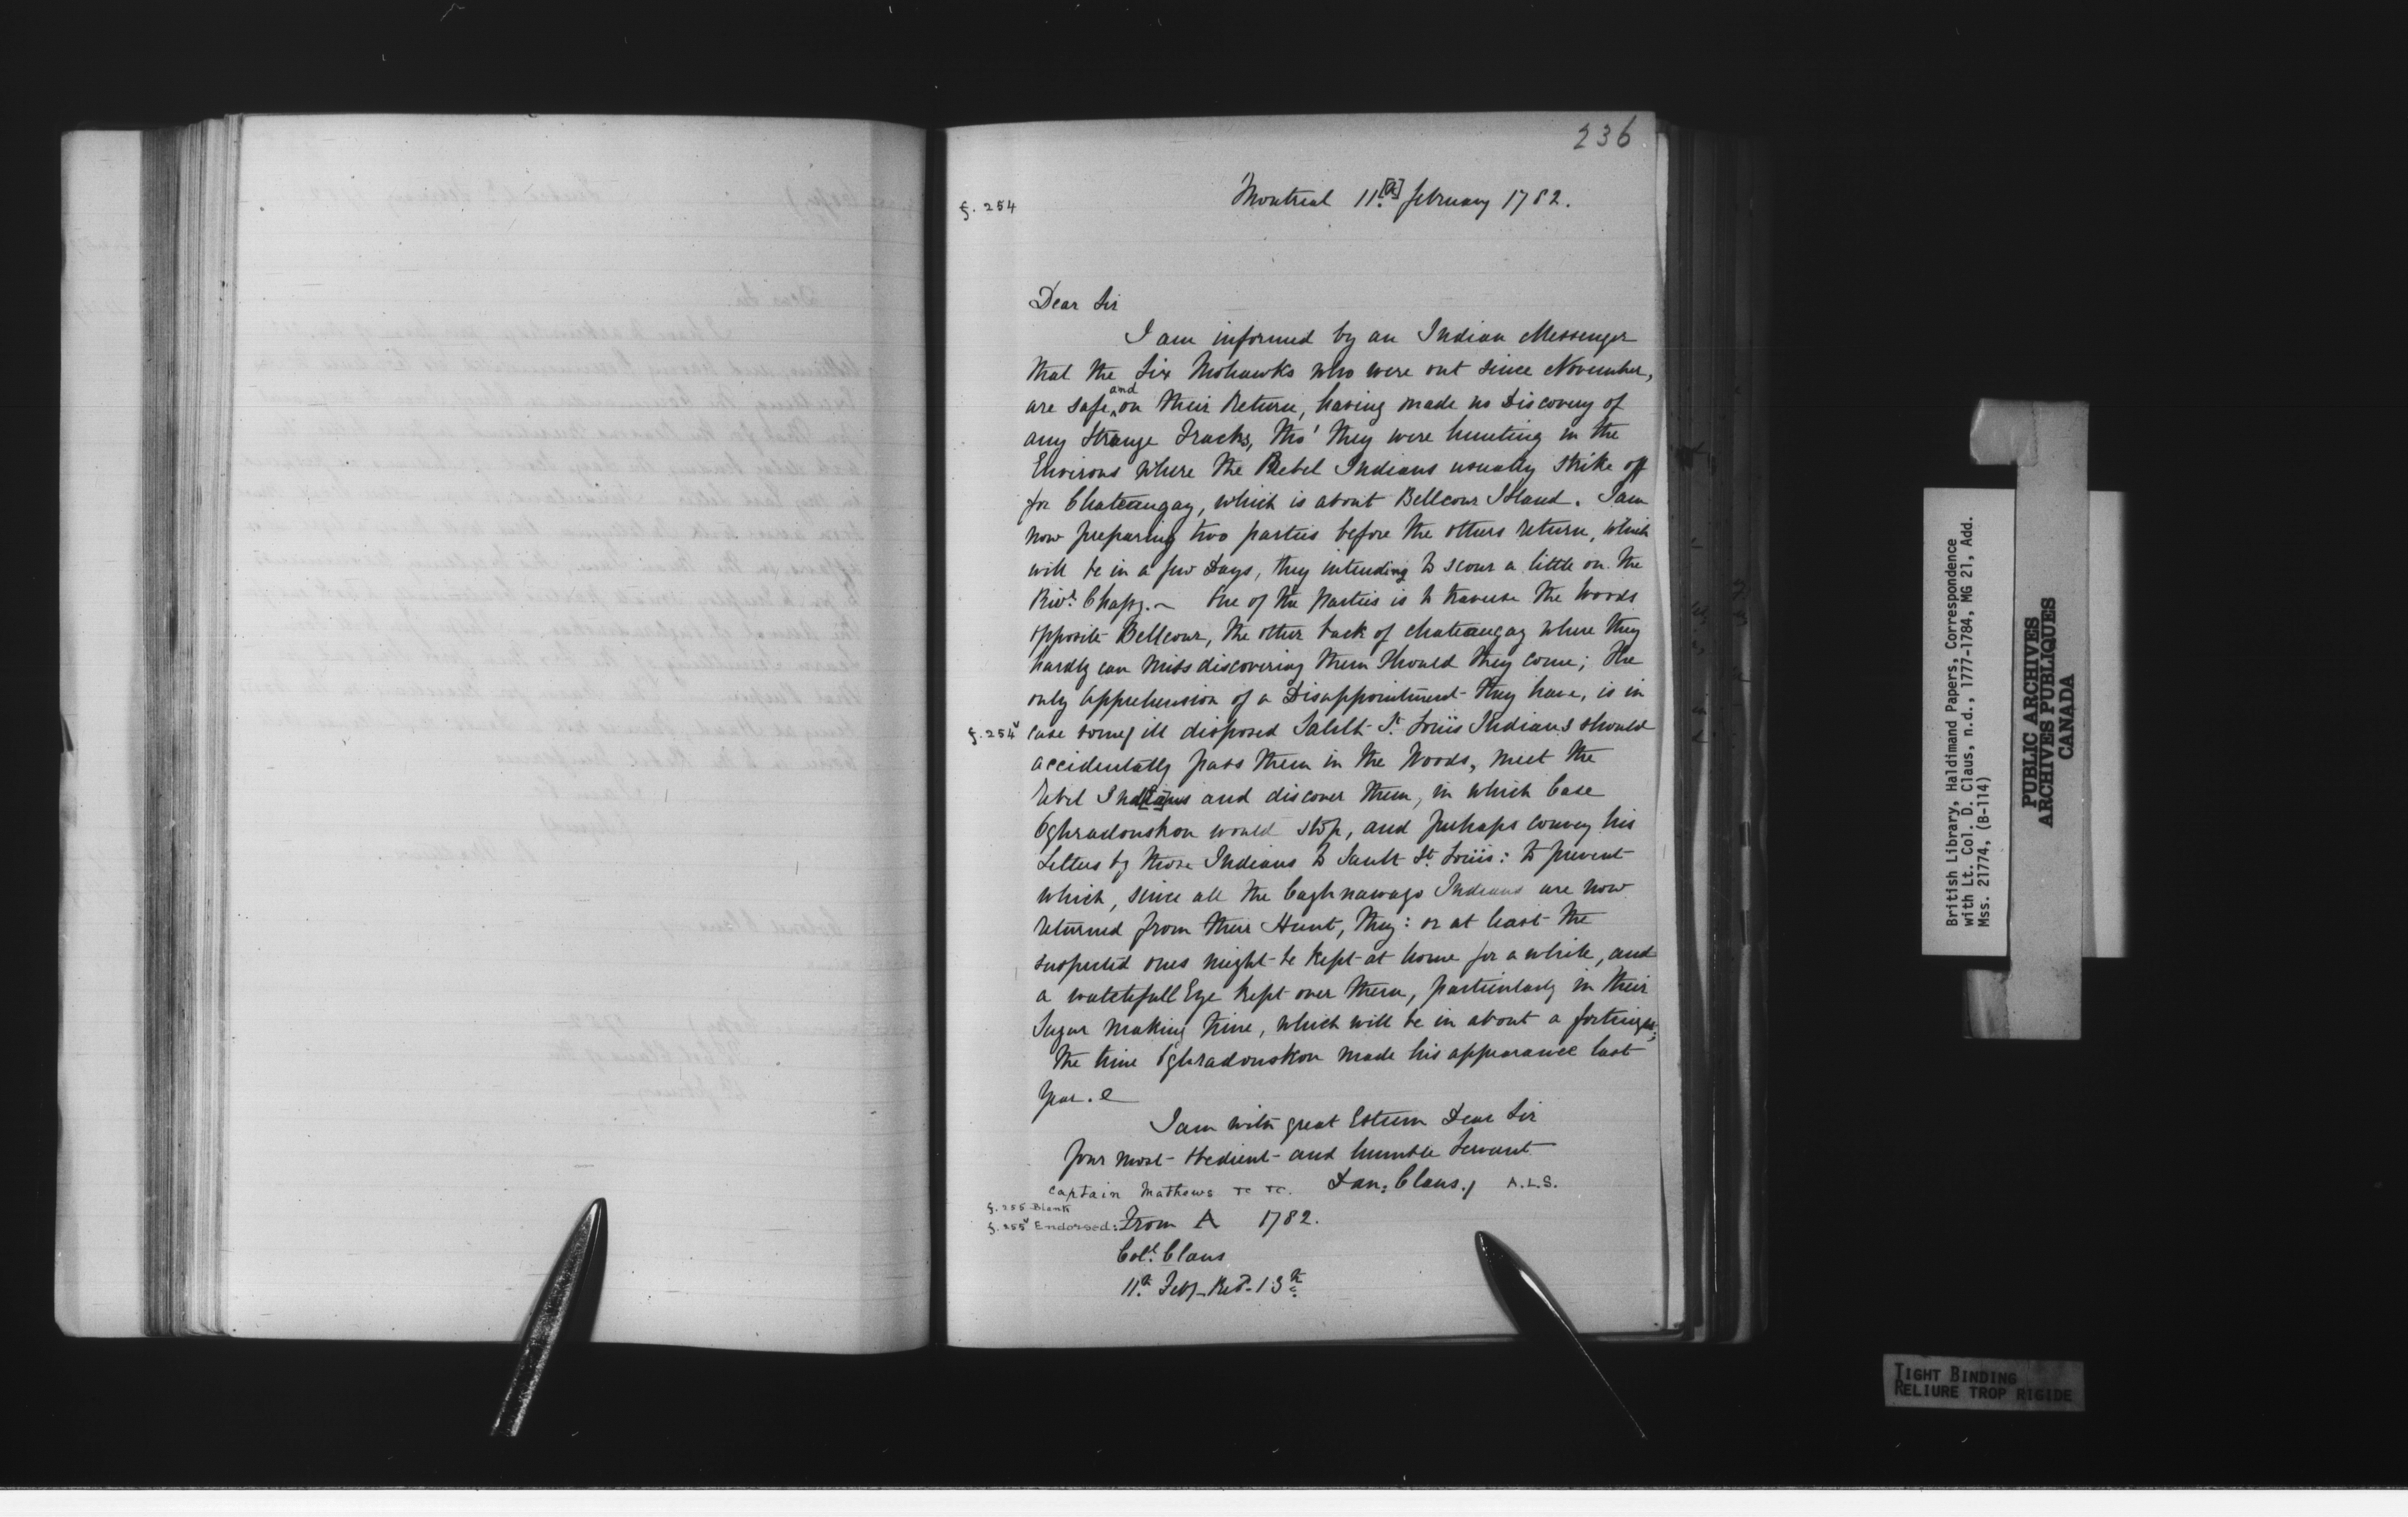 236
f. 254
Montreal 11.[th] february 1782.
Dear Sir
I am informed by an Indian Messenger
that the Six Mohawks who were out since November,
are safe and on their Return, having made no Discovery of
any Strange Tracks, tho' they were hunting in the
Environs where the Rebel Indians usually strike off
for Chateaugay, which is about Bellcour Island. I am
now preparing two parties before the others return, which
will be in a few Days, they intending to scour a little on the
Rivr. Chazy.~ One of the Parties is to traverse the Woods
opposite Bellcour, the other back of Chateaugay where they
hardly can miss discovering them should they come; the
only Apprehension of a Disappointment they have, is in
f. 254v case some/ ill disposed Sablt St. Louis Indians should
accidentally pass them in the Woods, meet the
rebel Indians and discover them, in which Case
Oghradonskon would stop, and perhaps convey his
Letters by those Indians to Sault St. Louis: to prevent
which, since all the Caghnawago Indians are now
returned from their Hunt, they: or at least the
suspected ones might be kept at home for a while, and
a watchfull Eye kept over them, particularly in their
Sugar making time, which will be in about a
the time Oghradonskon made his appearance last
Year.
I am with great Esteem Dear Sir
Your most obedient and humble Servant
Captain Mathews &c &c. Dan: Claus./ A.L.S.
f. 255 Blank
f. 255v Endorsed: From A 1782.
Coll. Claus
11th Feby Red. 13th
British Library, Haldimand Papers, Correspondence
with Lt. Col. D. Claus, n.d., 1777-1784, MG 21, Add.
Mss. 21774, (B-114)
PUBLIC ARCHIVES
ARCHIVES PUBLIQUES
CANADA
TIGHT BINDING
RELIURE TROP RIGIDE